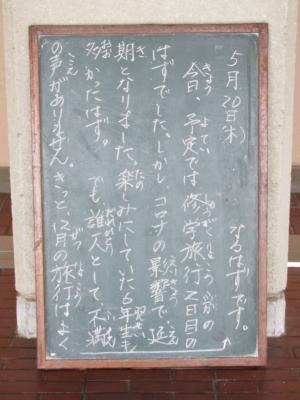 5月20日(木)
今日、予定では修学旅行2日目の
はずでした。しかし、コロナの影響で延
期となりました。楽しみにしていた6年生も
多かったはず。でも、誰人として不満
の声がありません。きっと、12月の旅行はよく
なるはずです。